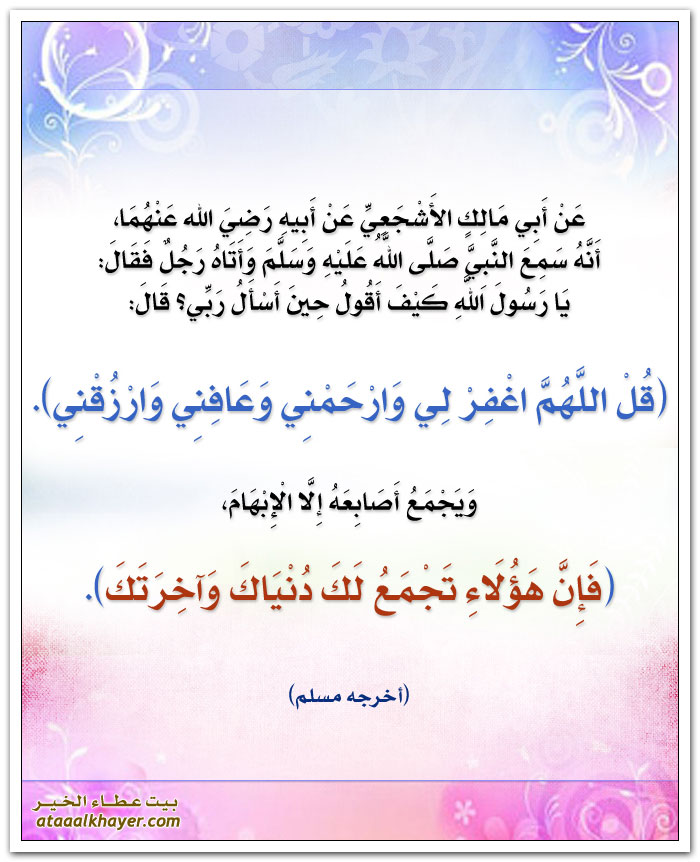 عَنْ أَبِي مَالِكٍ الأَشْجَعِيِّ عَنْ أَبِيهِ رَضِيَ الله عَنْهُمَا،
أَنَّهُ سَمِعَ النَّبِيَّ صَلَّى اللَّهُ عَلَيْهِ وَسَلَّمَ وَأَتَاهُ رَجُلٌ فَقَالَ:
يَا رَسُولَ اللَّهِ كَيْفَ أَقُولُ حِينَ أَسْأَلُ رَبِّي؟ قَالَ:
(قُلْ اللَّهُمَّ اغْفِرْ لِي وَارْحَمْنِي وَعَافِنِي وَارْزُقْنِي).
وَيَجْمَعُ أَصَابِعَهُ إِلَّا الْإِبْهَامَ،
(فَإِنَّ هَؤُلَاءِ تَجْمَعُ لَكَ دُنْيَاكَ وَآخِرَتَكَ).
(أخرجه مسلم)
بيت عطاء الخير
ataaalkhayer.com